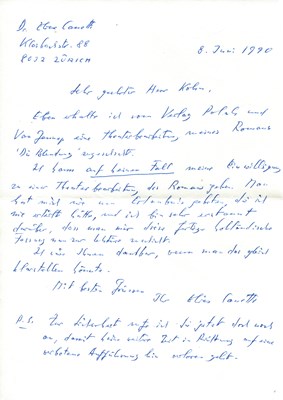 Dr. Elias Canetti
Klosbachstr. 88
8032 ZÜRICH
8. Juni 1990
Sehr geehrter Herr Kolen,
Eben erhalte ich vom Verlag Polak und
Van Gennep eine Theaterbearbeitung meines Romans
'Die Blendung' zugeschickt.
Ich kann auf keinen Fall meine Einwilligung
zu einer Theaterbearbeitung des Romans geben. Man
hat mich nie um Erlaubnis gebeten, die ich
nie erteilt hätte, und ich bin sehr erstaunt
darüber, dass man mir diese fertige holländische
Fassung nun zur Lektüre zuschickt.
Ich wäre Ihnen dankbar, wenn man das gleich
klarstellen könnte.
Mit besten Grüssen
Ihr Elias Canetti
P.S. Zur Sicherheit rufe ich Sie jetzt doch noch
an, damit keine weitere Zeit in auf eine
verbotene Aufführung hin verloren geht.